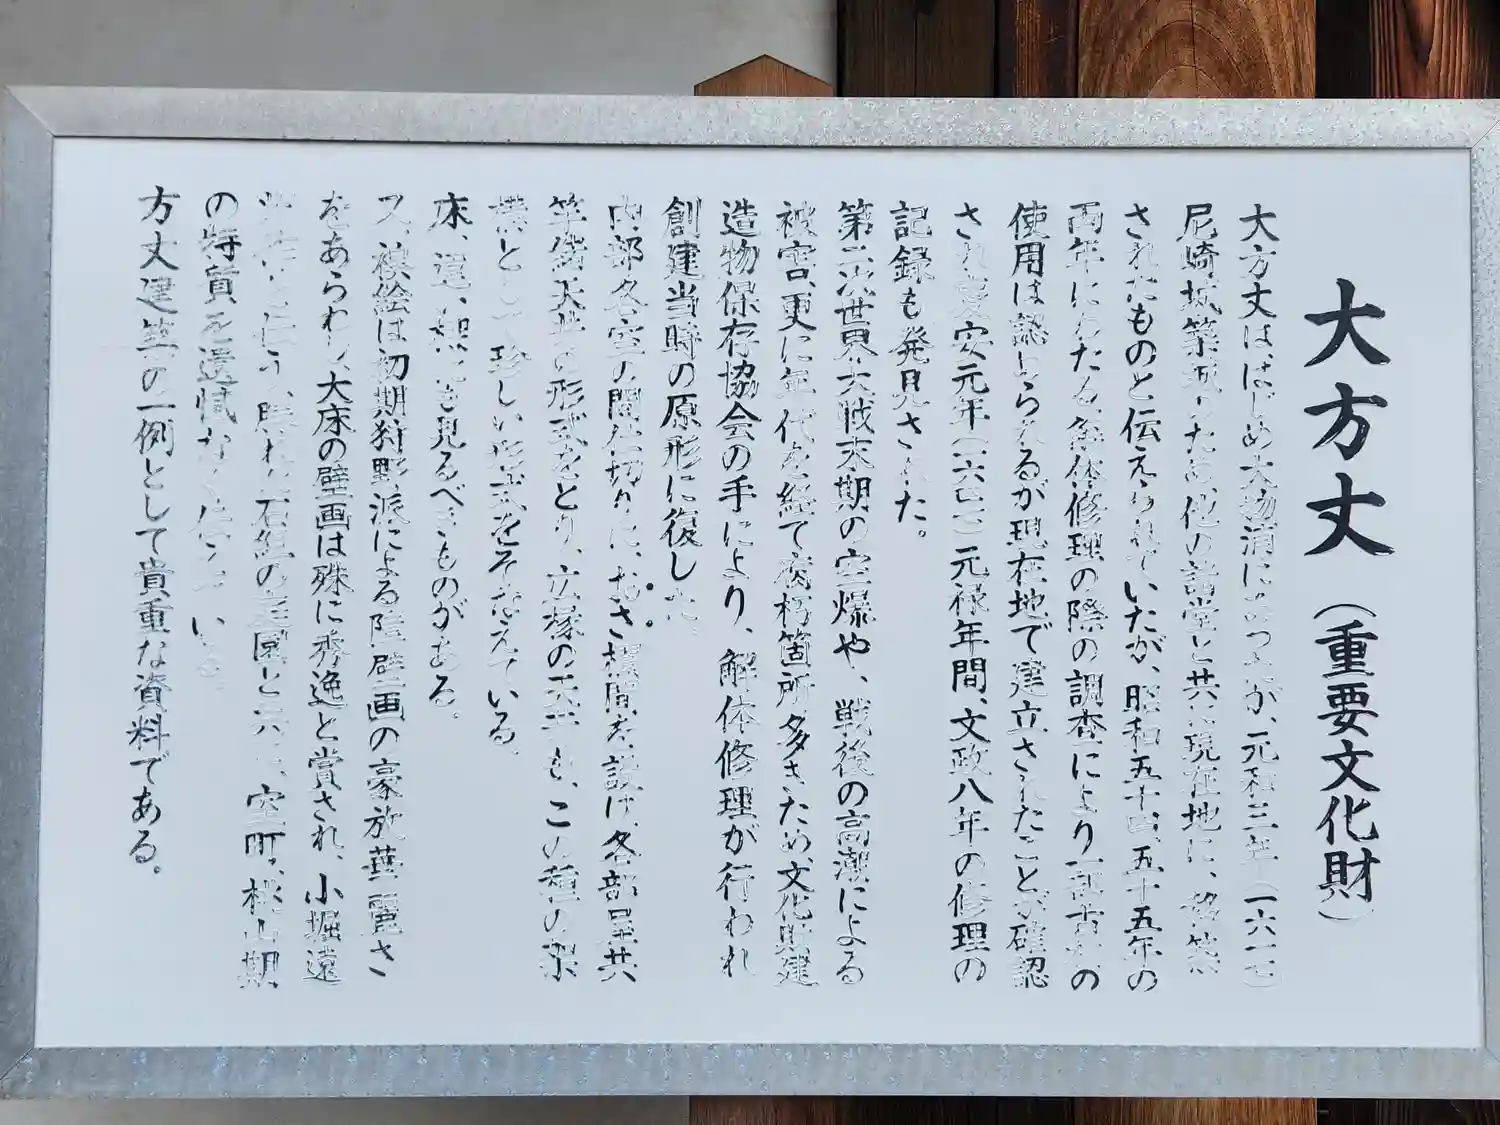 大方丈（重要文化財）
大方丈は、はじめ大物浦にあったが、元和三年（一六一七）
尼崎城築城のため、他の諸堂と共に現在地に、移築
されたものと伝えられていたが、昭和五十四、五十五年の
両年にわたる解体修理の際の調査により一部古材の
使用は認められるが現在地で建立されたことが確認
され慶安元年（一六四八）元禄年間、文政八年の修理の
記録も発見された。
第二次世界大戦末期の空爆や、戦後の高潮による
被害、更に年代を経て腐朽箇所多きため、文化財建
造物保存協会の手により、解体修理が行われ
創建当時の原形に復した。
内部各室の間仕切りに、おさ欄間を設け、各部屋共
竿縁天井の形式をとり、広縁の天井も、この種の架
構として珍しい形式をそなえている。
床、違、も見るべきものがある。
又、襖絵は初期狩野派による障壁画の豪放華麗さ
をあらわし、大床の壁画は殊に秀逸と賞され、小堀遠
石組の庭園と共に、室町、桃山期
の特質を遺憾なく伝えている。
方丈建築の一例として貴重な資料である。